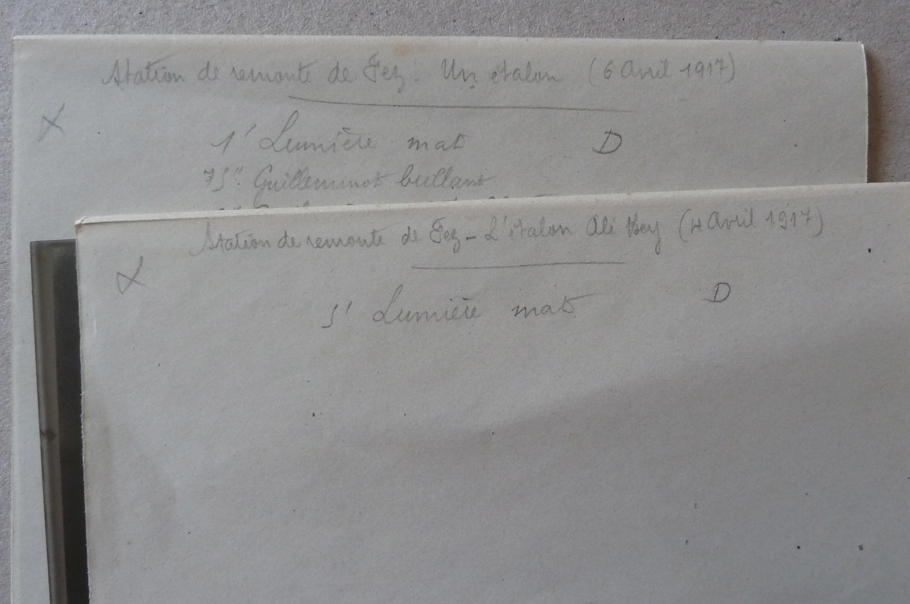 Station de remonte de Fez. Un étalon (6 Avril 1917)
X
1' Lumière mat D
75" Guilleminot brillant
Station de remonte de Fez - L'étalon Ali Bey (4 Avril 1917)
X
5' Lumière mat D